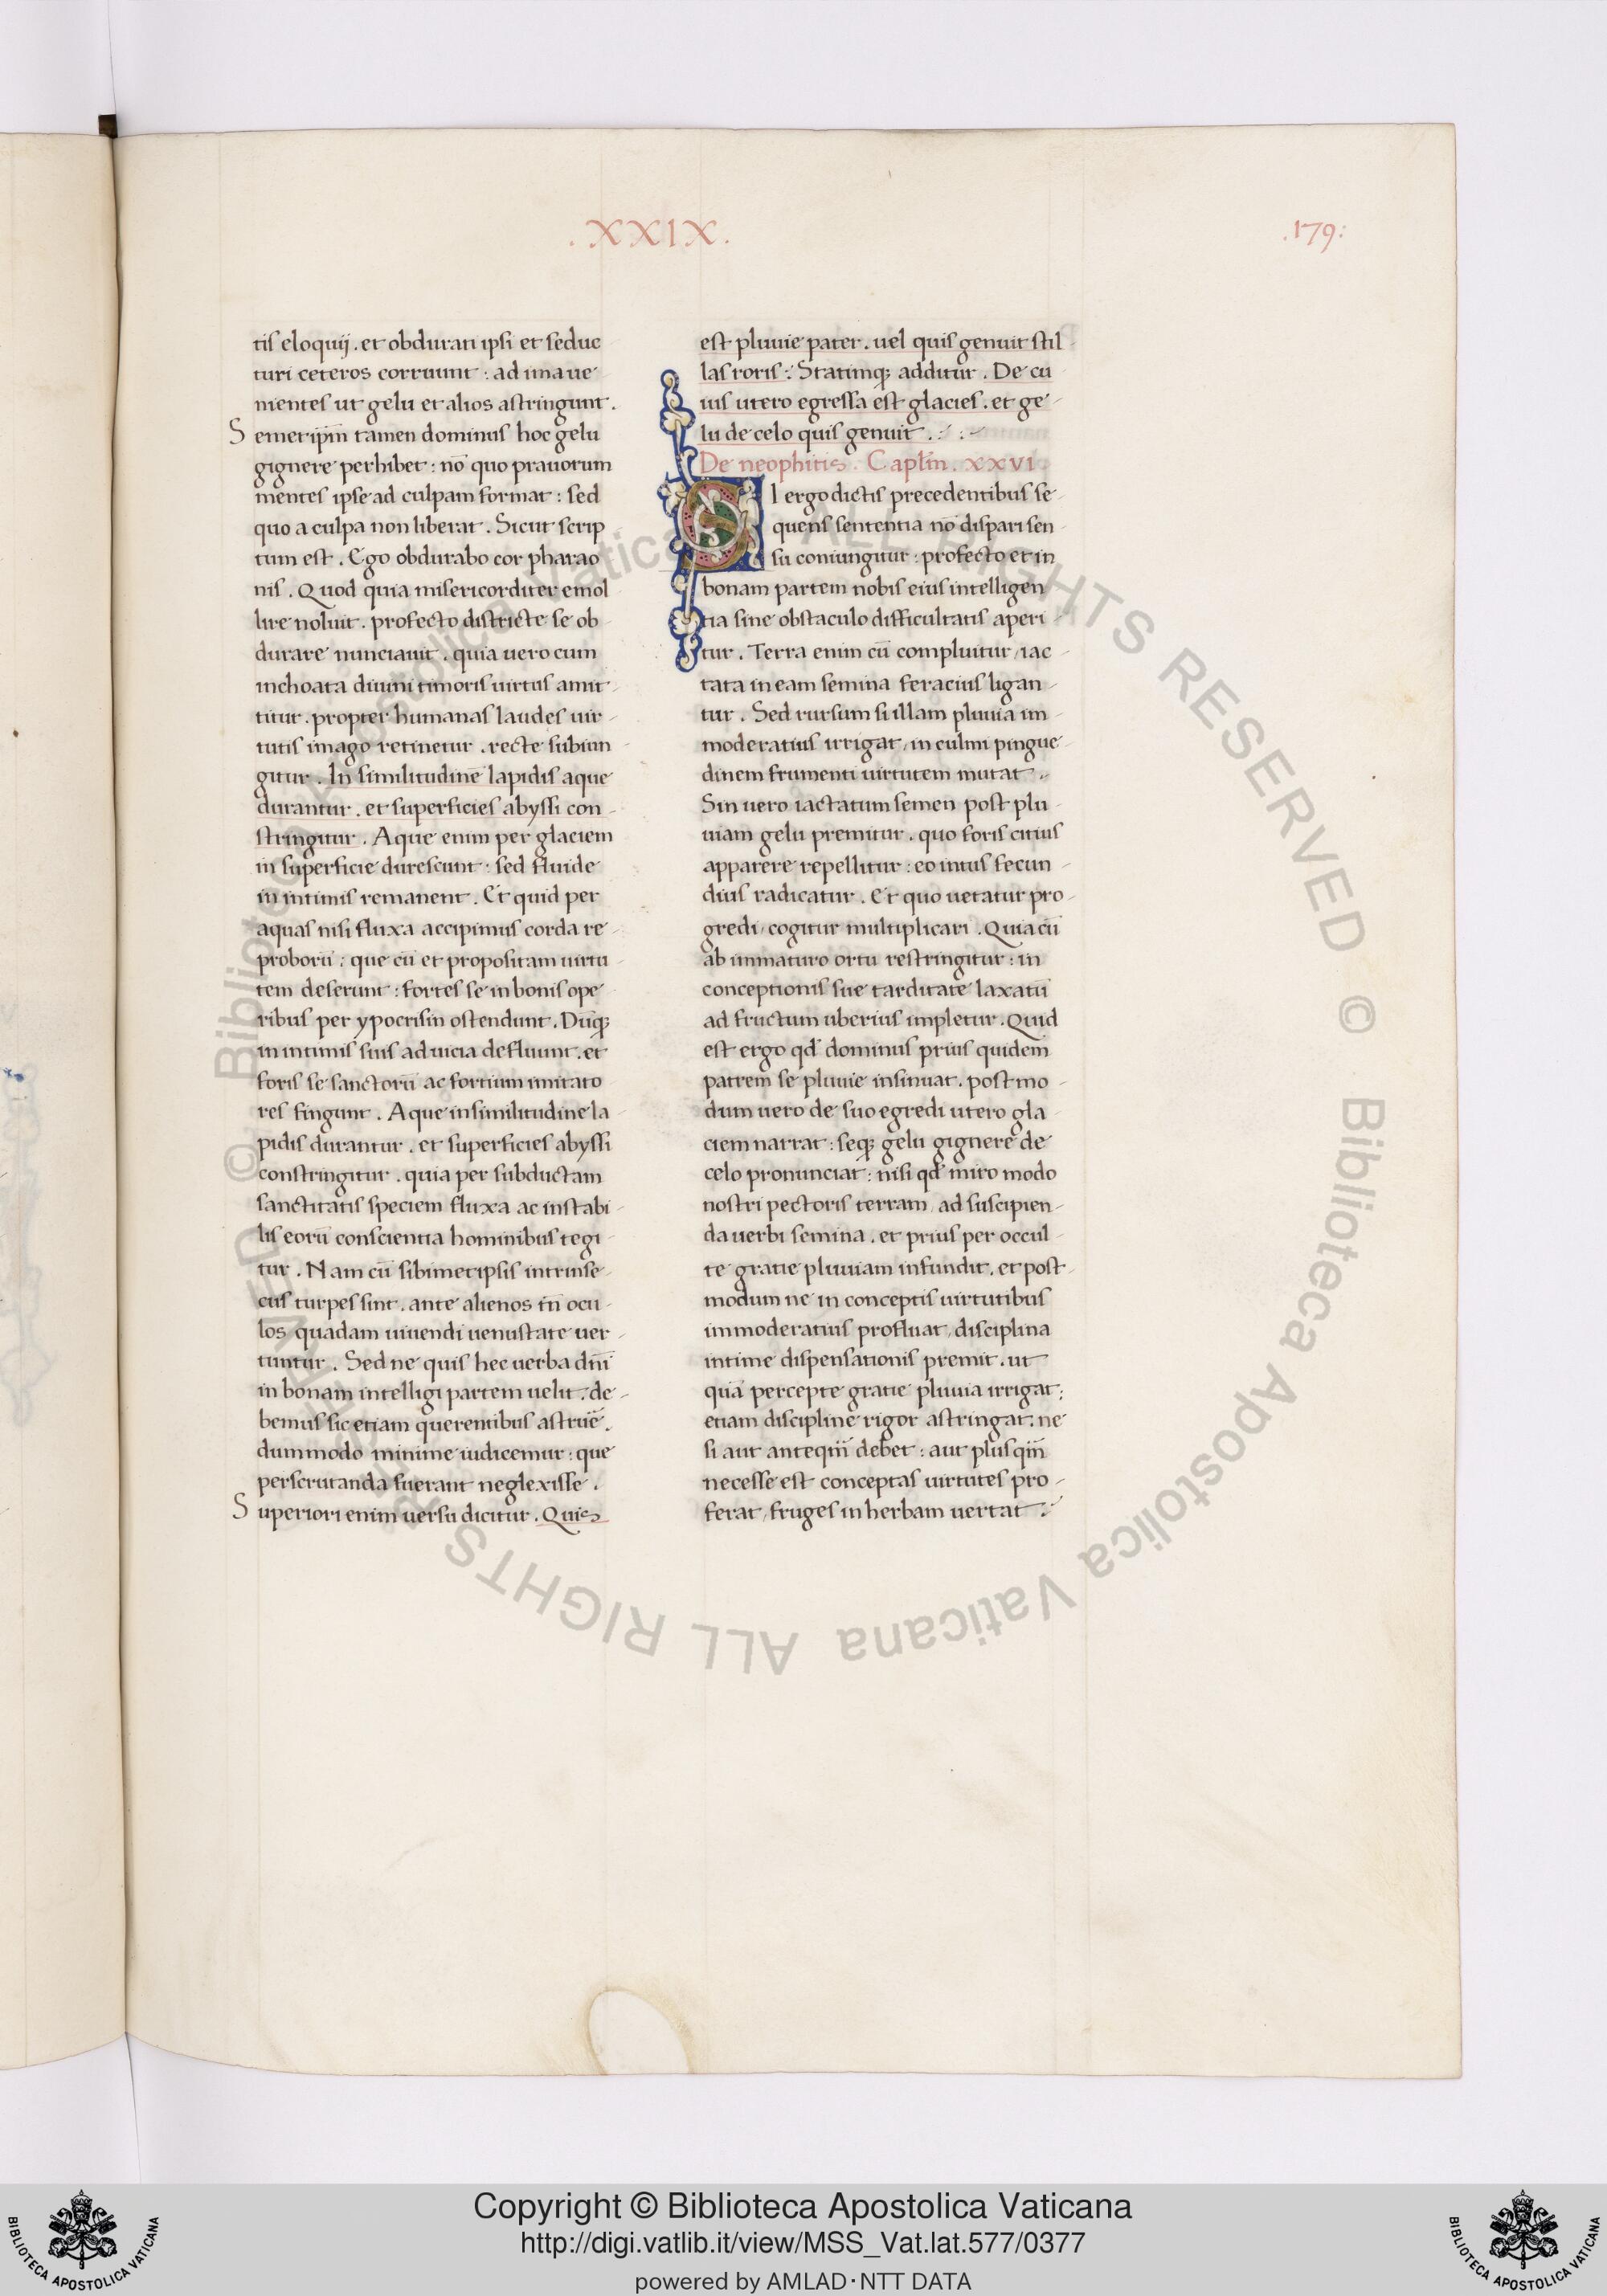 .XXIX.
.179:
tis eloquij . et obdurati ipsi et seduc
turi ceteros corruunt : ad ima ue
nientes ut gelu et alios astringunt .
Semetipm̄ tamen dominus hoc gelu
gignere perhibet : nō quo prauorum
mentes ipse ad culpam format : sed
quo a culpa non liberat . Sicut scrip
tum est . Ego obdurabo cor pharao
nis . Quod quia misericorditer emol
lire noluit . profecto districte se ob
durare nunciauit . quia uero cum
inchoata diuini timoris uirtus amit-
titur . propter humanas laudes uir-
tutis imago retinetur . recte subiun-
gitur . In similitudinē lapidis aque
durantur . et superficies abyssi con-
stringitur . Aque enim per glaciem
in superficie durescunt : sed fluide
in intimis remanent . Et quid per
aquas nisi fluxa accipimus corda re-
proborū : que cū et propositam uirtu-
tem deserunt : fortes se in bonis ope-
ribus per ypocrisin ostendunt . Dūq;
in intimis suis ad uicia defluunt . et
foris se sanctorū ac fortium imitato
res fingunt . Aque in similitudine la-
pidis durantur . et superficies abyssi
constringitur . quia per subductam
sanctitatis speciem fluxa ac instabi-
lis eorū conscientia hominibus tegi-
tur . Nam cū sibimetipsis intrinse-
cus turpes sint . ante alienos tn̄ ocu-
los quadam uiuendi uenustate uer-
tuntur . Sed ne quis hec uerba dn̄i
in bonam intelligi partem uelit : de-
bemus sic etiam querentibus astruē .
dummodo minime iudicemur : que
perscrutanda fuerant neglexisse .
Superiori enim uersu dicitur . Quis
est pluuie pater . uel quis genuit stil-
las roris : Statimq; additur . De cu-
ius utero egressa est glacies . et ge-
lu de celo quis genuit .
De neophitis . Capl̄m . XXVI .
SI ergo dictis precedentibus se-
quens sententia nō dispari sen-
su coniungitur : profecto et in
bonam partem nobis eius intelligen-
tia sine obstaculo difficultatis aperi-
tur . Terra enim cū compluitur / iac-
tata in eam semina feracius ligan-
tur . Sed rursum si illam pluuia im-
moderatius irrigat / in culmi pingue-
dinem frumenti uirtutem mutat .
Sin uero iactatum semen post plu-
uiam gelu premitur . quo foris citius
apparere repellitur : eo intus fecun-
dius radicatur . Et quo uetatur pro-
gredi / cogitur multiplicari . Quia cū
ab immaturo ortu restringitur : in
conceptionis sue tarditate laxatū
ad fructum uberius impletur . Quid
est ergo qd̄ dominus prius quidem
patrem se pluuie insinuat . postmo-
dum uero de suo egredi utero gla-
ciem narrat : seq; gelu gignere de
celo pronunciat : nisi qd̄ miro modo
nostri pectoris terram / ad suscipien-
da uerbi semina . et prius per occul-
te gratie pluuiam infundit . et post-
modum ne in conceptis uirtutibus
immoderatius profluat / disciplina
intime dispensationis premit . ut
quā percepte gratie pluuia irrigat :
etiam discipline rigor astringat . ne
si aut anteqm̄ debet : aut plus qm̄
necesse est conceptas uirtutes pro-
ferat / fruges in herbam uertat :
© Biblioteca Apostolica Vaticana ALL RIGHTS RESERVED © Biblioteca Apostolica Vaticana ALL RIGHTS RESERVED
Copyright © Biblioteca Apostolica Vaticana
http://digi.vatlib.it/view/MSS_Vat.lat.577/0377
powered by AMLAD·NTT DATA
BIBLIOTECA APOSTOLICA VATICANA
BIBLIOTECA APOSTOLICA VATICANA